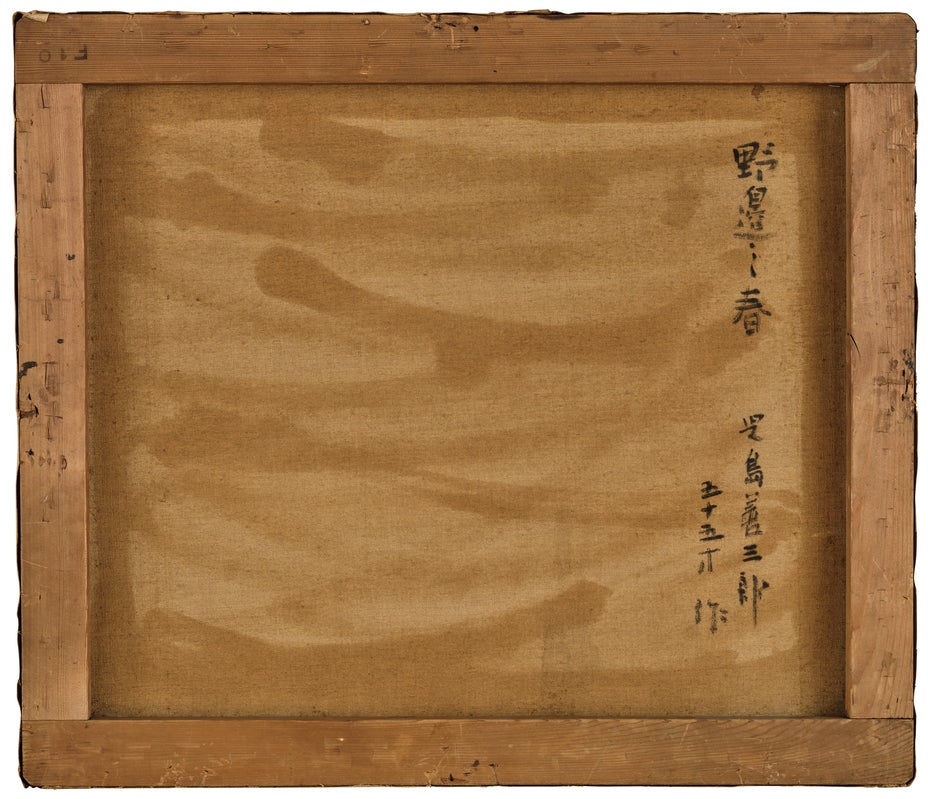 野邊之春
児島善三郎
五十五才 作
F10